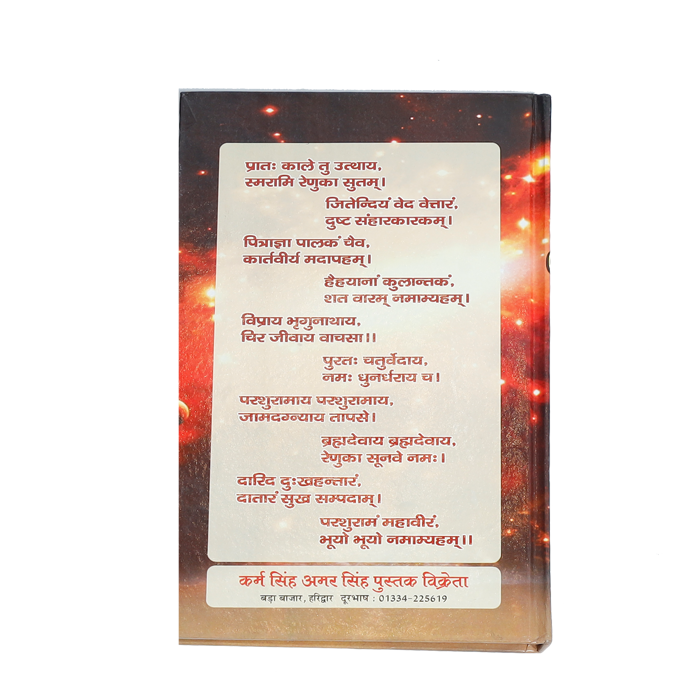 प्रातः काले तु उत्थाय,
स्मरामि रेणुका सुतम्।
जितेन्दियं वेद वेत्तारं,
दुष्ट संहारकारकम्।
पित्राज्ञा पालकं चैव,
कार्तवीर्य मदापहम्।
हैहयानां कुलान्तकं,
शत वारम् नमाम्यहम्।
विप्राय भृगुनाथाय,
चिर जीवाय वाचसा।।
पुरतः चतुर्वेदाय,
नमः धुनर्धराय च।
परशुरामाय परशुरामाय,
जामदग्न्याय तापसे।
ब्रह्मदेवाय ब्रह्मदेवाय,
रेणुका सूनवे नमः।
दारिद दुःखहन्तारं,
दातारं सुख सम्पदाम्।
परशुरामं महावीरं,
भूयो भूयो नमाम्यहम्।।
कर्म सिंह अमर सिंह पुस्तक विक्रेता
बड़ा बाजार, हरिद्वार दूरभाष : 01334-225619